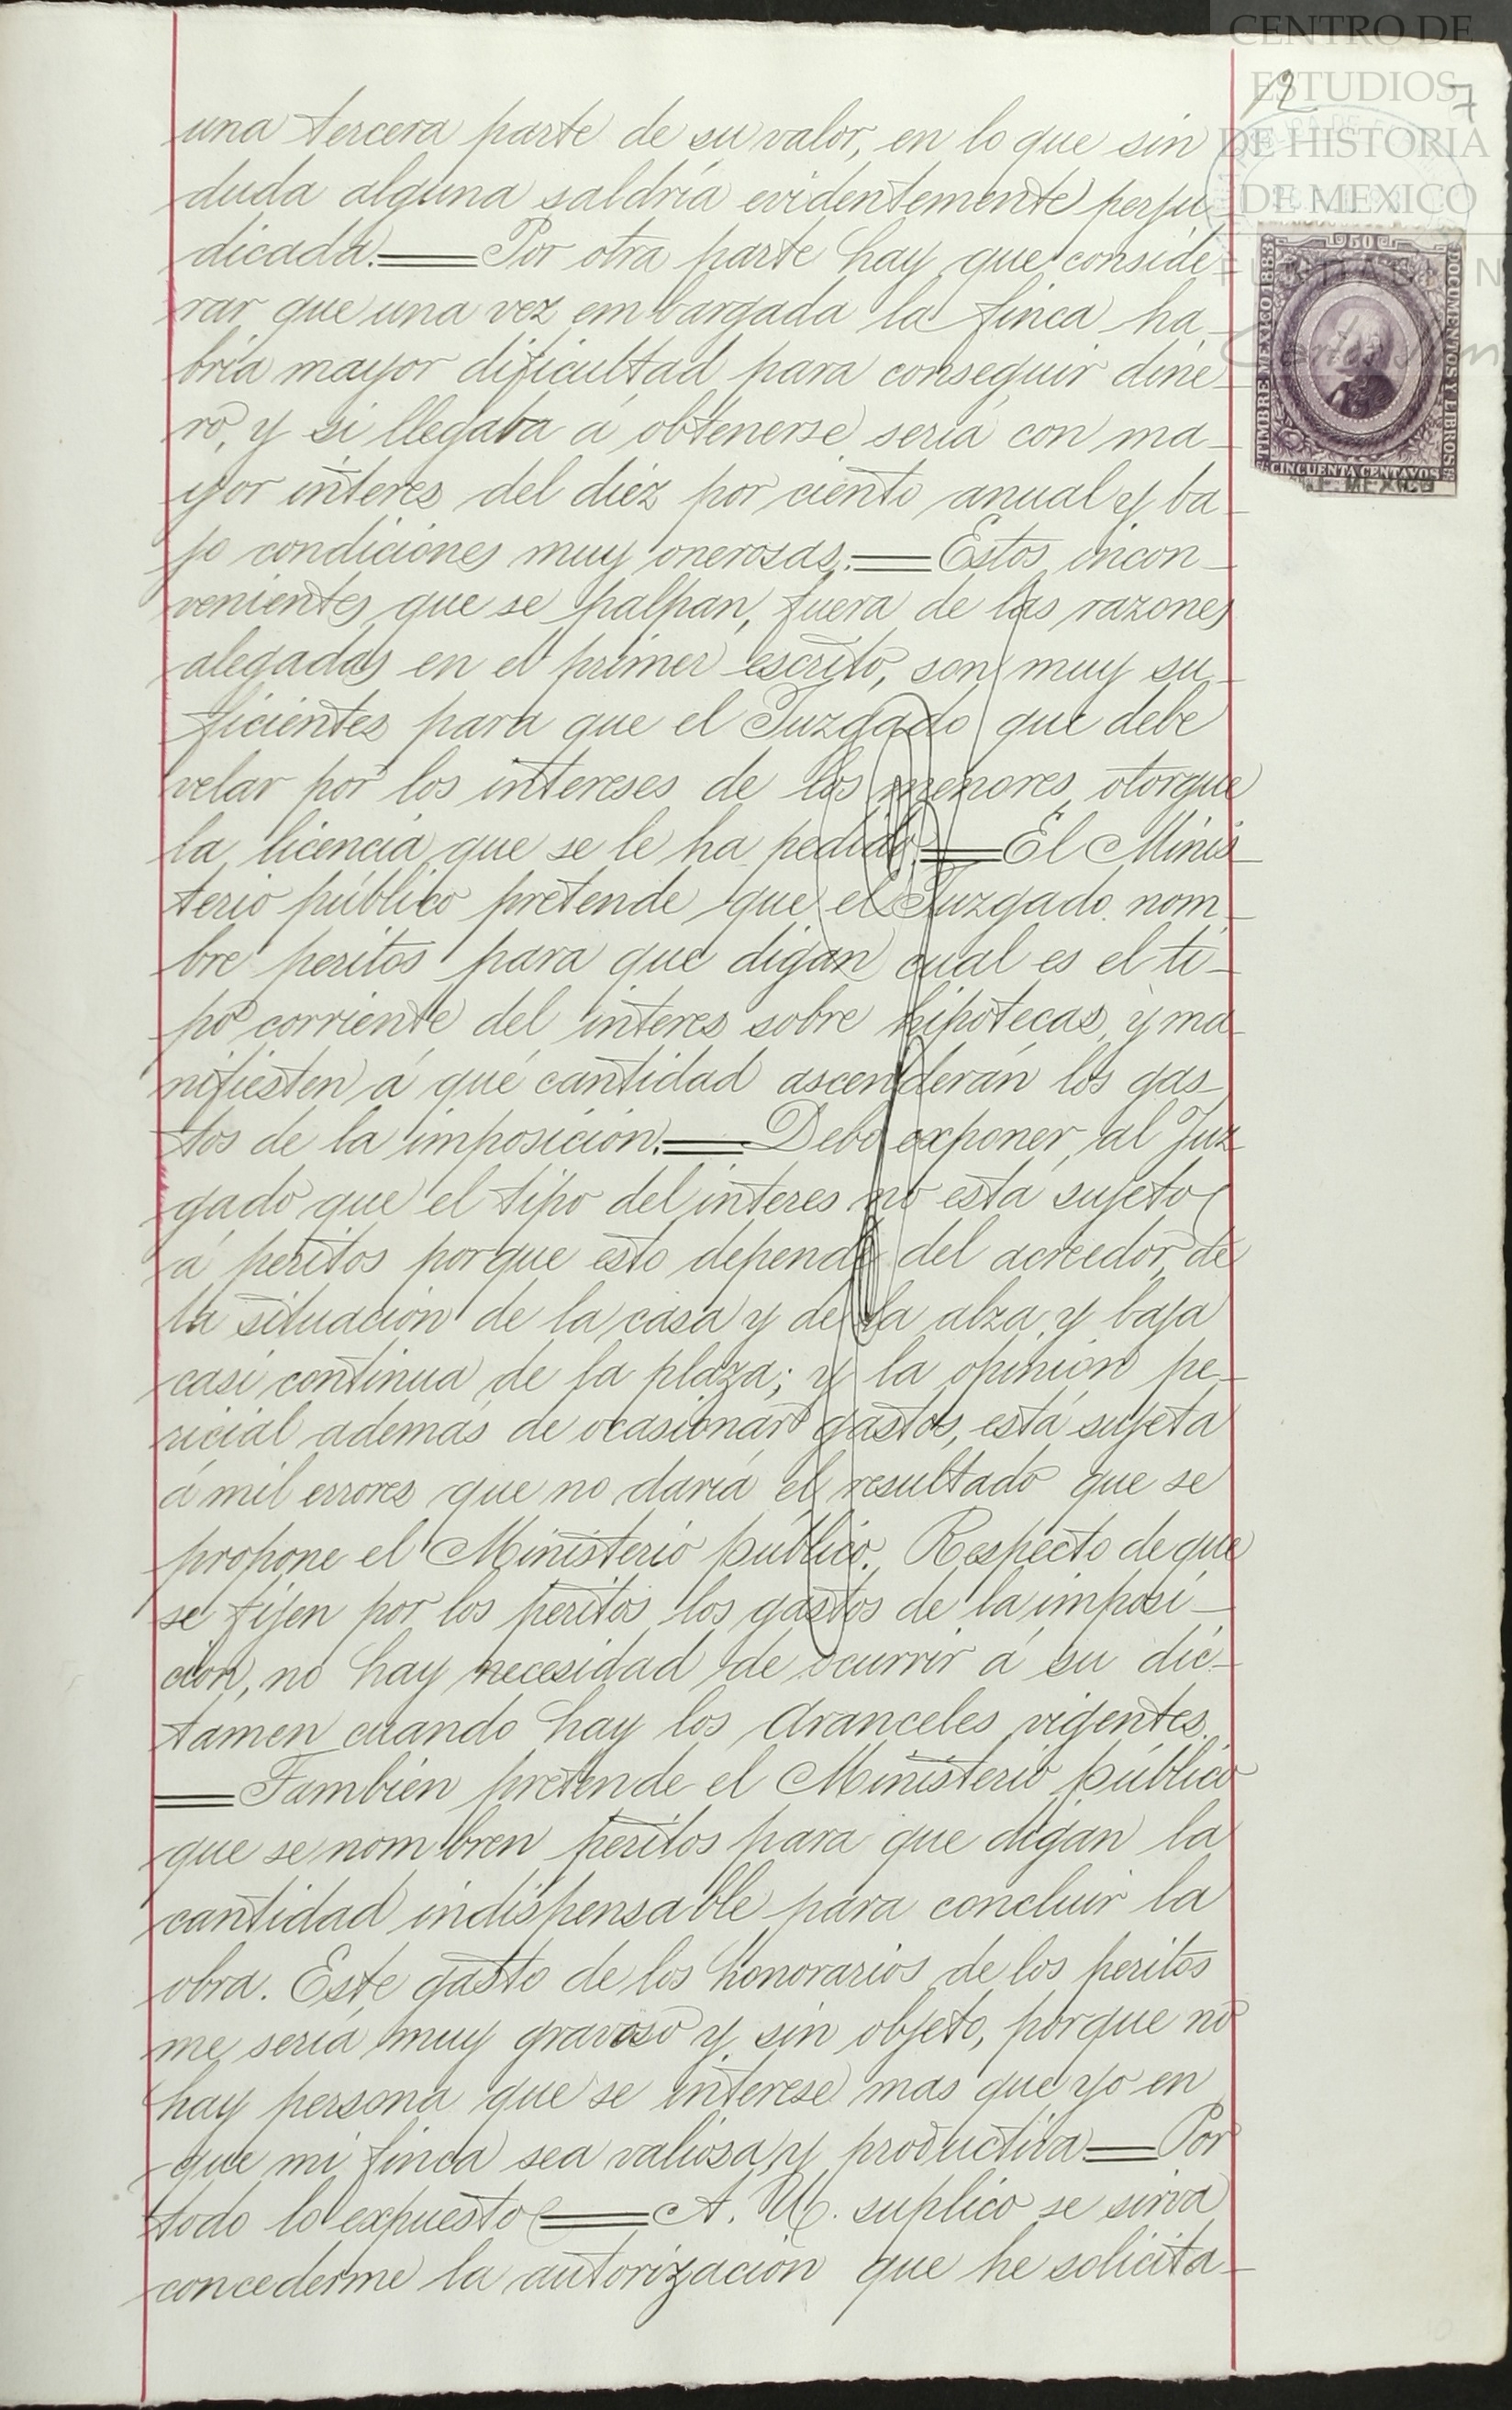 CENTRO DE
ESTUDIOS
DE HISTORIA
DE MEXICO
7
una tercera parte de su valor, en lo que sin
duda alguna saldría evidentemente perju
dicada.=Por otra parte hay que conside
rar que una vez embargada la finca ha_
bría mayor dificultad para conseguir dine_
ro, y si llegaba á obtenerse sería con ma_
yor interes del diez por ciento anual y ba_
jo condiciones muy onerosas.=Estos incon_
venientes que se palpan, fuera de las razones
alegadas en el primer escrito, son muy su_
ficientes para que el Juzgado que debe
velar por los intereses de los menores, otorgue
la licencia que se le ha pedido.=El Minis
terio público pretende que el Juzgado nom_
bre peritos para que digan cual es el ti_
po corriente del interes sobre hipotecas, y ma_
nifiesten á qué cantidad ascenderán los gas_
tos de la imposición.=Debo exponer al Juz
gado que el tipo del interes no está sujeto
á peritos porque esto depende del acreedor, de
la situación de la casa y de la alza y baja
casi continua de la plaza; y la opinión pe_
ricial además de ocasionar gastos, está sujeta
á mil errores que no daría el resultado que se
propone el Ministerio público. Respecto de que
se fijen por los peritos los gastos de la imposi_
ción, no hay necesidad de ocurrir á su dic_
tamen cuando hay los Aranceles vigentes.
=También pretende el Ministerio público
que se nombren peritos para que digan la
cantidad indispensable para concluir la
obra. Este gasto de los honorarios de los peritos
me sería muy gravoso y sin objeto, porque no
hay persona que se interese mas que yo en
que mi finca sea valiosa y productiva=Por
todo lo expuesto=A. U. suplico se sirva
concederme la autorización que he solicita_
50
TIMBRE MEXICO 1883
DOCUMENTOS Y LIBROS
CINCUENTA CENTAVOS
MEXICO